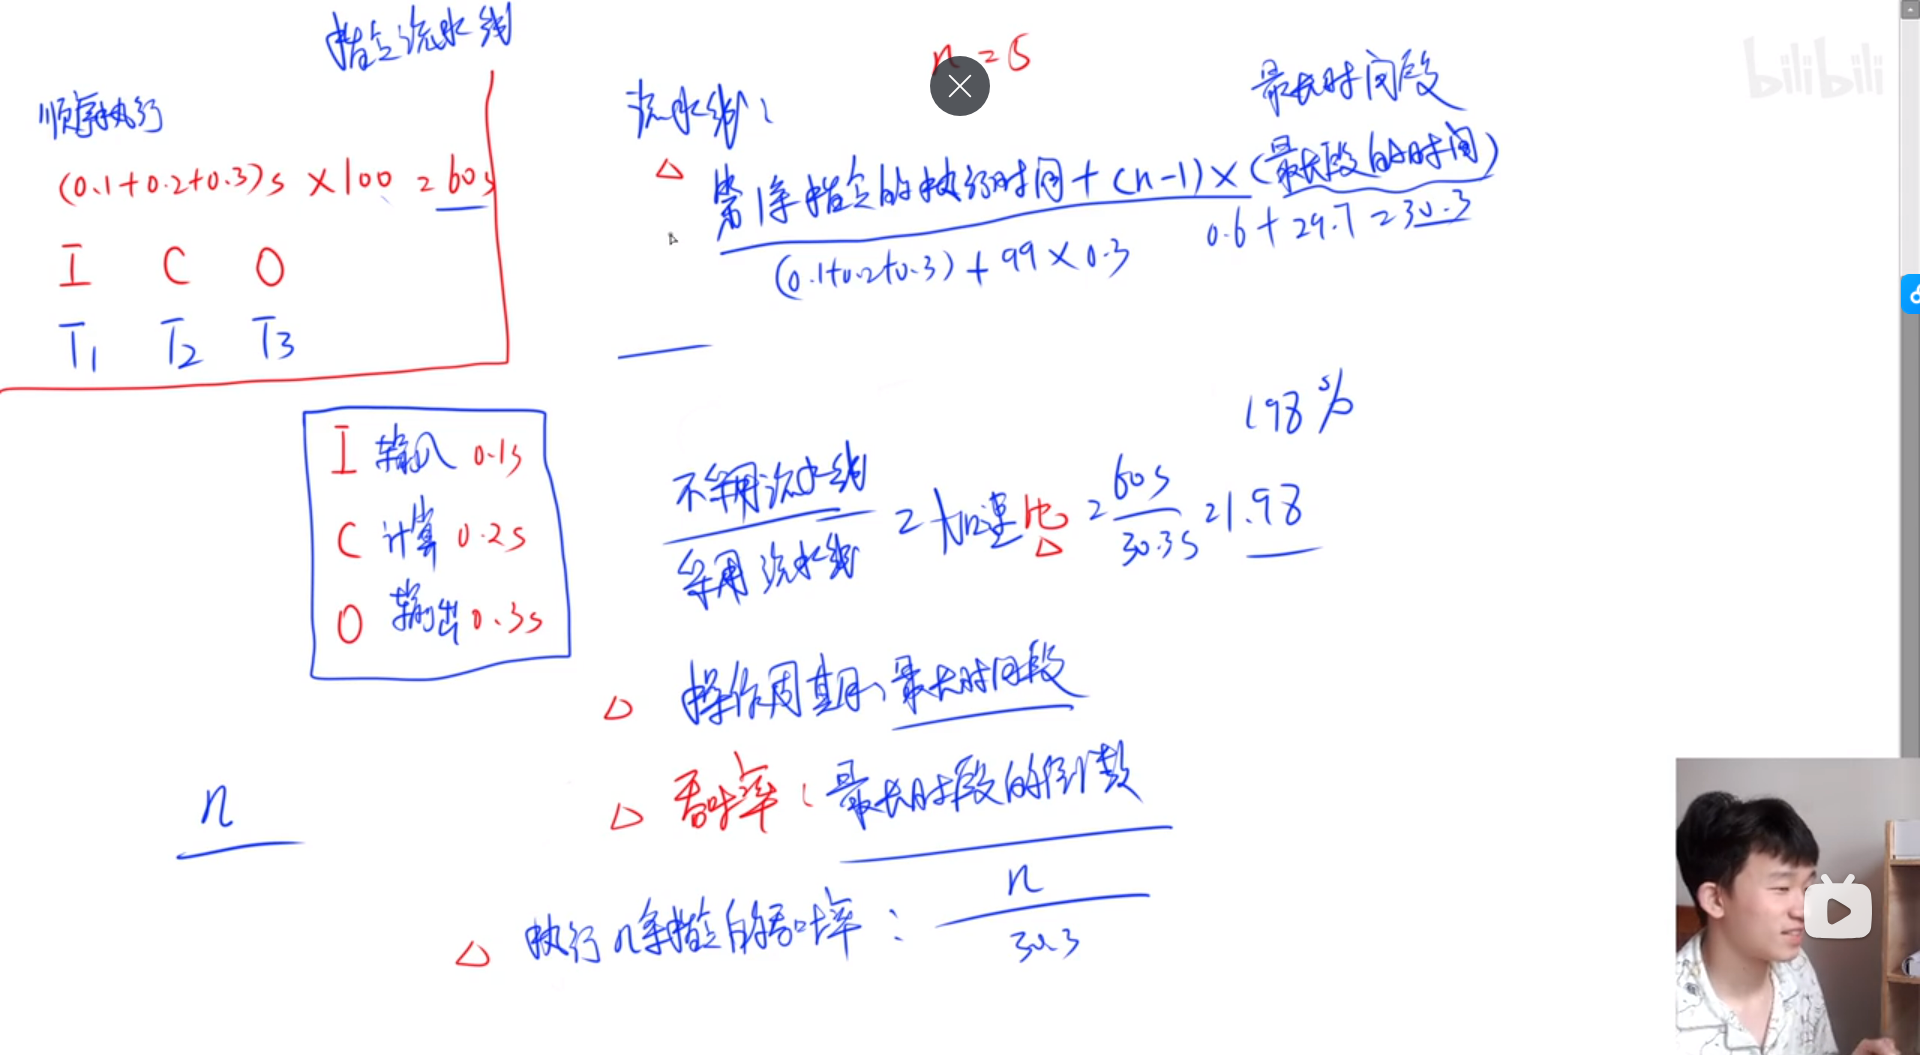 指令流水线
顺序执行
(0.1+0.2+0.3)s ×100 = 60s
I C O
T1 T2 T3
n=5
流水线:
最长时间段
△ 第1条指令的执行时间+(n-1)×(最长段的时间)
(0.1+0.2+0.3)+99×0.3
0.6+29.7=30.3
I 输入 0.1s
C 计算 0.2s
O 输出 0.3s
198%
不采用流水线
采用流水线
=加速比=
△
60s
30.3s
=1.98
△ 操作周期:最长时间段
△ 吞吐率:最长时段的倒数
n
△ 执行n条指令的吞吐率:
n
30.3
bilibili